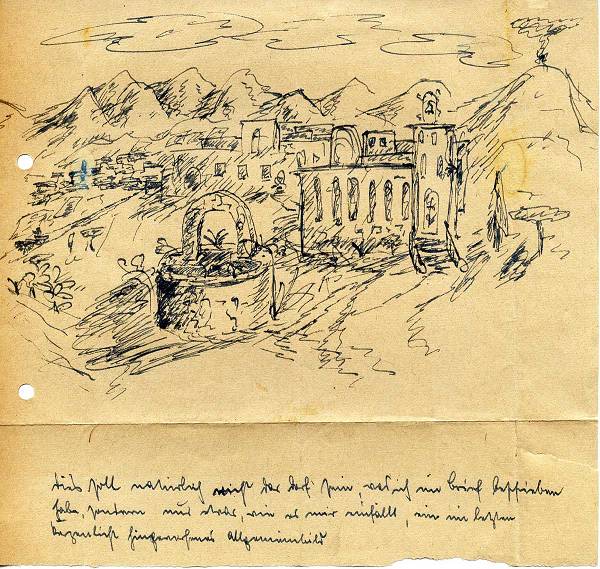 Dies soll natürlich nicht das Dorf sein, was ich im Brief beschrieben
habe, sondern nur etwas, wie es mir einfällt, ein im letzten
Kerzenlicht hingeworfenes Allgemeinbild